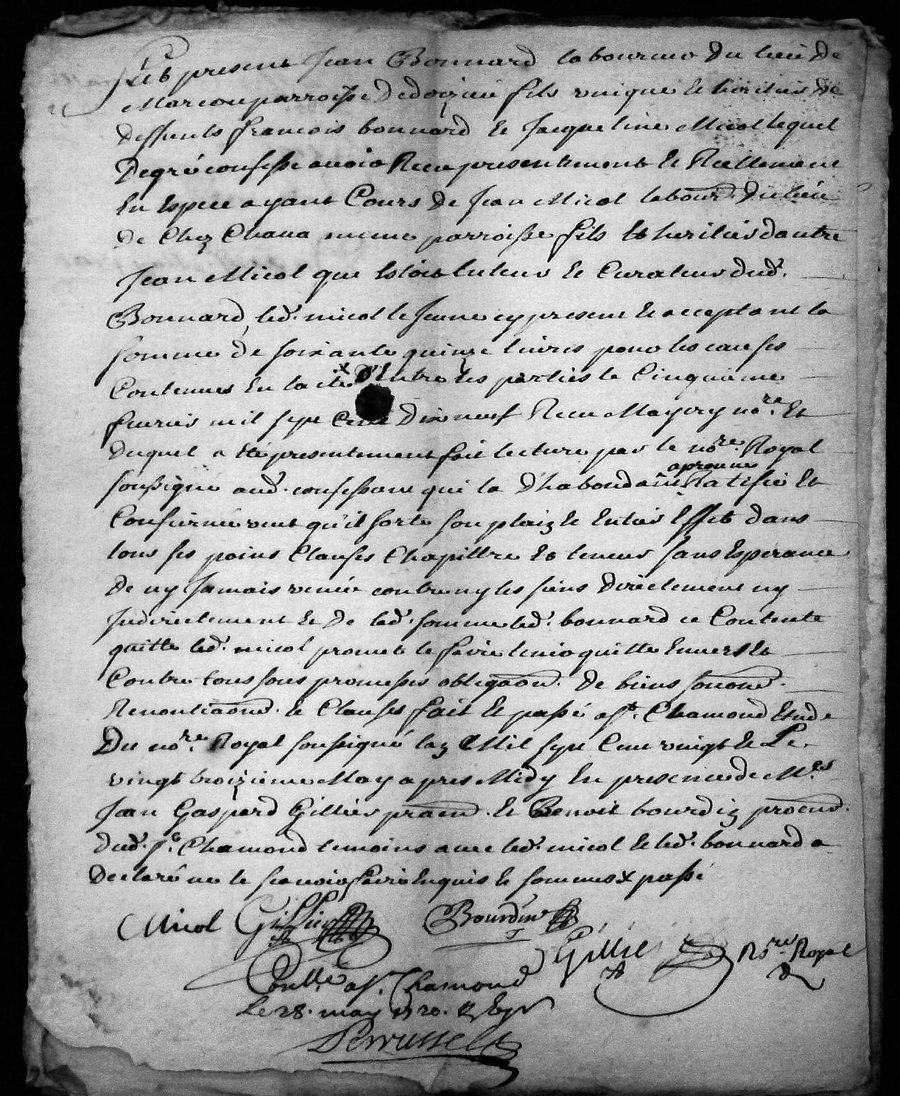 fut present Jean Bonnard laboureur du lieu de
Marcou parroisse de doizieu fils unique et heritier de
deffunts francois bonnard et Jacqueline Micol lequel
De gré confesse avoir Receu presentement et Reellement
En Espece ayant Cours de Jean Micol labour. du lieu
de Chez Chana meme parroisse fils et heritier d'autre
Jean Micol que Estoit tuteur et Curateur dud.
Bonnard, led. micol le Jeune cy present et acceptant la
somme de soixante quinze livres pour les causes
Contenues En la Entre les parties le Cinquieme
fevrier mil sept Cent Dix neuf Receu Mayery nore. Et
duquel a Eté presentement fait lecture par le nore Royal
soussigné aud. confessant qui la D'habondant aprouvé Ratifié Et
Confirmé veut qu'il sorte son plain et Entier Effet dans
tous ses points Clauses Chapittre Et teneur sans Esperance
de ny Jamais venir contre ny les siens directement ny
Indirectement Et de lad. somme led. bonnard ce Contente
quitte led. micol promet le faire tenir quitte Envers Et
Contre tous sous promesses obligaon. de biens
Renontiaons. et Clauses fait Et passé a St. Chamond Etude
Du nore Royal soussigné Mil sept Cent vingt et Le
vingt troizieme May apres Midy En presence de Mes
Jean Gaspard Gillier prat. et Benoit bourdin
dud. St. Chamond temoins avec led. micol et led. bonnard a
declaré ne le scavoir faire Enquis et sommé x passé
Micol Gillier Bourdin
Gillie Nore Royal
Conllé a St. Chamond
Le 28. may 1720.
Perrussel